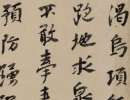 渴烏項
跑地求泉
不敢奉
預防彊